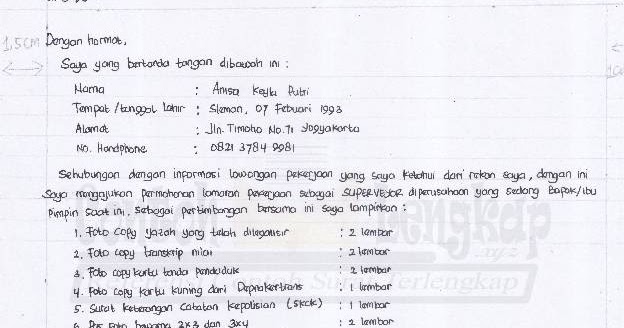 1,5cm Dengan hormat,
Saya yang bertanda tangan dibawah ini :
Nama : Anisa Keyla Putri
Tempat / tanggal lahir : Sleman, 07 Febuari 1993
Alamat : Jln. Timoho No.71 Yogyakarta
No. Handphone : 0821 3784 9981
Sehubungan dengan informasi lowongan pekerjaan yang saya ketahui dari rekan saya, dengan ini
Saya mengajukan permohonan lamaran pekerjaan sebagai SUPERVESOR diperusahaan yang sedang Bapak/ibu
Pimpin saat ini. sebagai pertimbangan bersama ini saya lampirkan :
1. Foto copy yazah yang telah dilegalisir : 2 lembar
2. Foto copy transkrip nilai : 2 lembar
3. Foto copy kartu tanda penduduk : 2 lembar
4. Foto copy kartu kuning dari Depnakertrans : 1 lembar
5. Surat keterangan Catatan kepolisian (SKCK) : 1 lembar
6. Pas Foto 2x3 dan 3x4 : 2 lembar